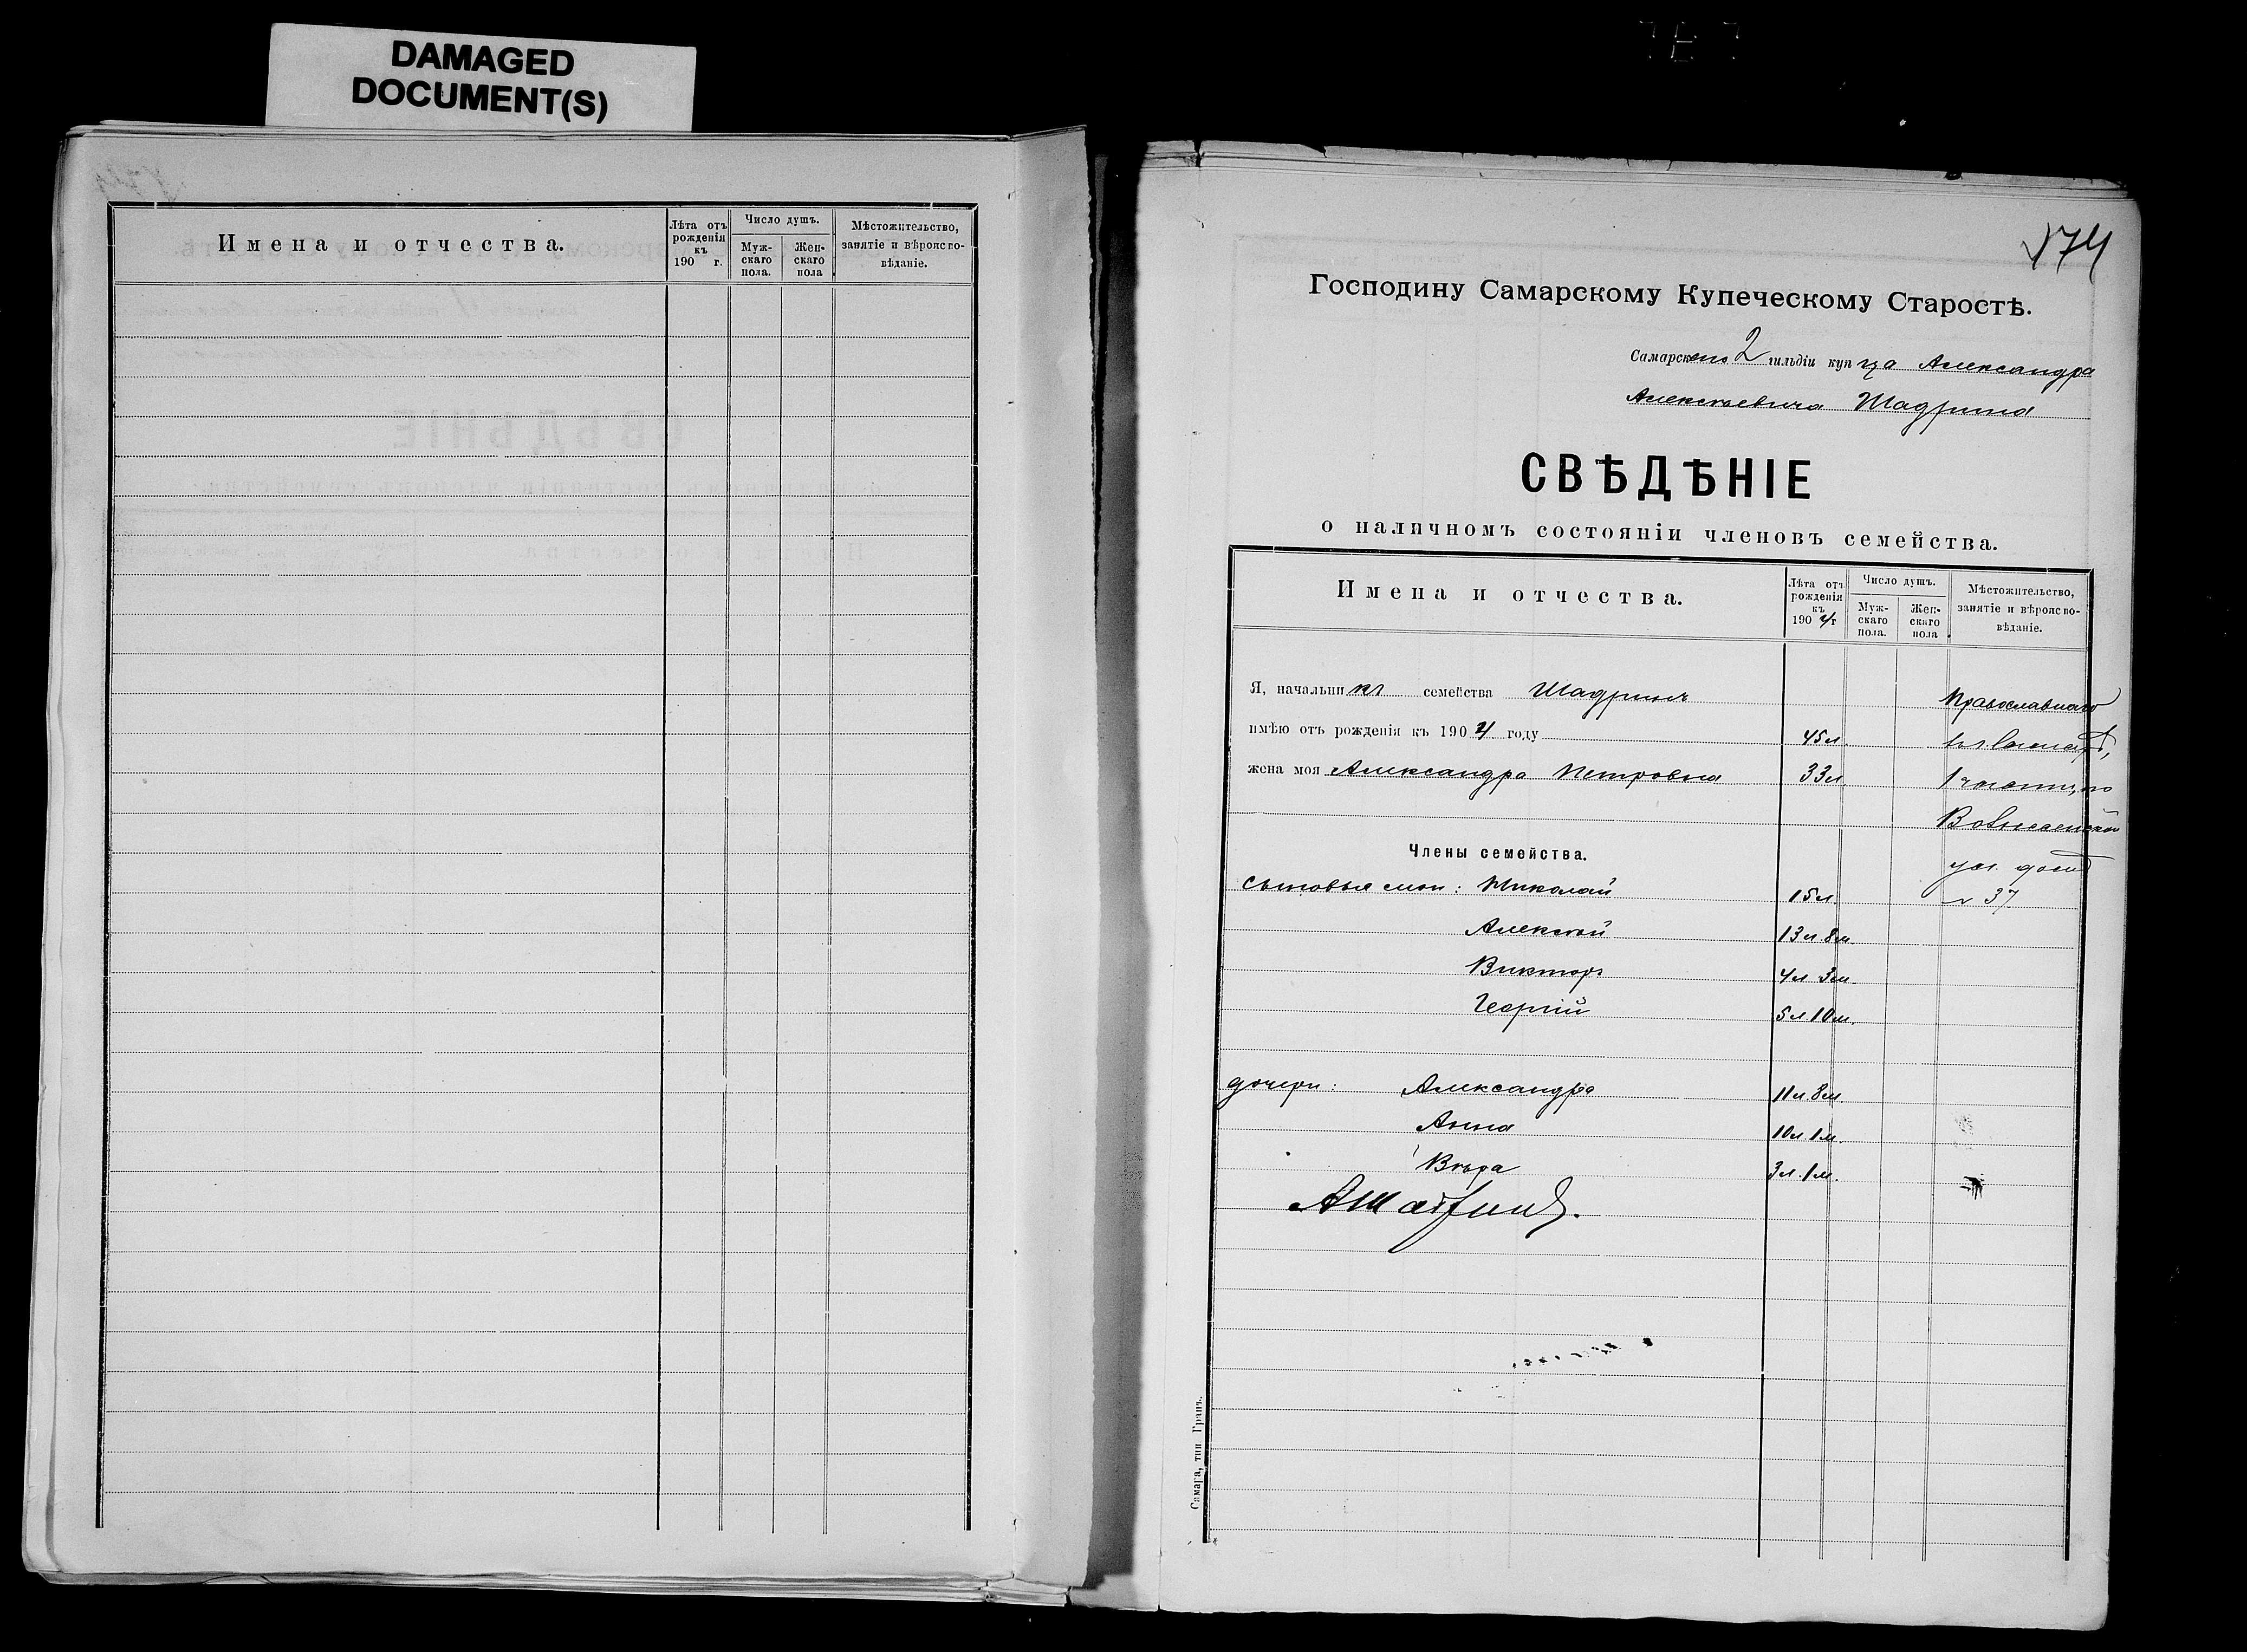 DAMAGED
DOCUMENT(S)
Имена и отчества.
Лѣта отъ рожденія къ 190 г.
Число душъ.
Мужскаго пола.
Женскаго пола
Мѣстожительство, занятіе и вѣроисповѣданіе.
174
Господину Самарскому Купеческому Старостѣ.
Самарскаго 2 гильдіи купца Александра
Алексѣевича Шадрина
СВѢДѢНІЕ
о наличномъ состояніи членовъ семейства.
Имена и отчества.
Лѣта отъ рожденія къ 1904 г
Число душъ.
Мужскаго пола.
Женскаго пола
Мѣстожительство, занятіе и вѣроисповѣданіе.
Я, начальникъ семейства Шадринъ Православнаго
имѣю отъ рожденія къ 1904 году 45 л.
жена моя Александра Петровна 33 л. 1 части, по
Вознесенской
Члены семейства.
ул. домъ
сыновья мои: Николай 15 л. № 37
Алексѣй 13 л. 8 м.
Викторъ 4 л. 3 м.
Георгій 5 л. 10 м.
дочери: Александра 11 л. 8 м.
Анна 10 л. 1 м.
Вѣра 3 л. 1 м.
АШадринъ.
Самара, тип. Гранъ.